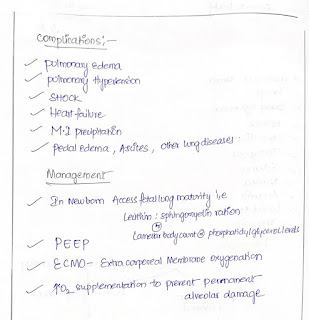 Complications:-
✓ Pulmonary edema
✓ pulmonary Hypertension
✓ SHOCK
✓ Heart failure
✓ M.I precipitation
✓ Pedal edema, Ascites, other lung diseases.
Management
✓ In Newborn Access fetal lung maturity i,e
Lecithin : sphingomyelin ration
(or)
Lamellar body count @ phosphatidylglycerol levels
✓ PEEP
✓ ECMO - Extra corporeal Membrane oxygenation
✓ ↑O2 supplementation to prevent permanent
alveolar damage